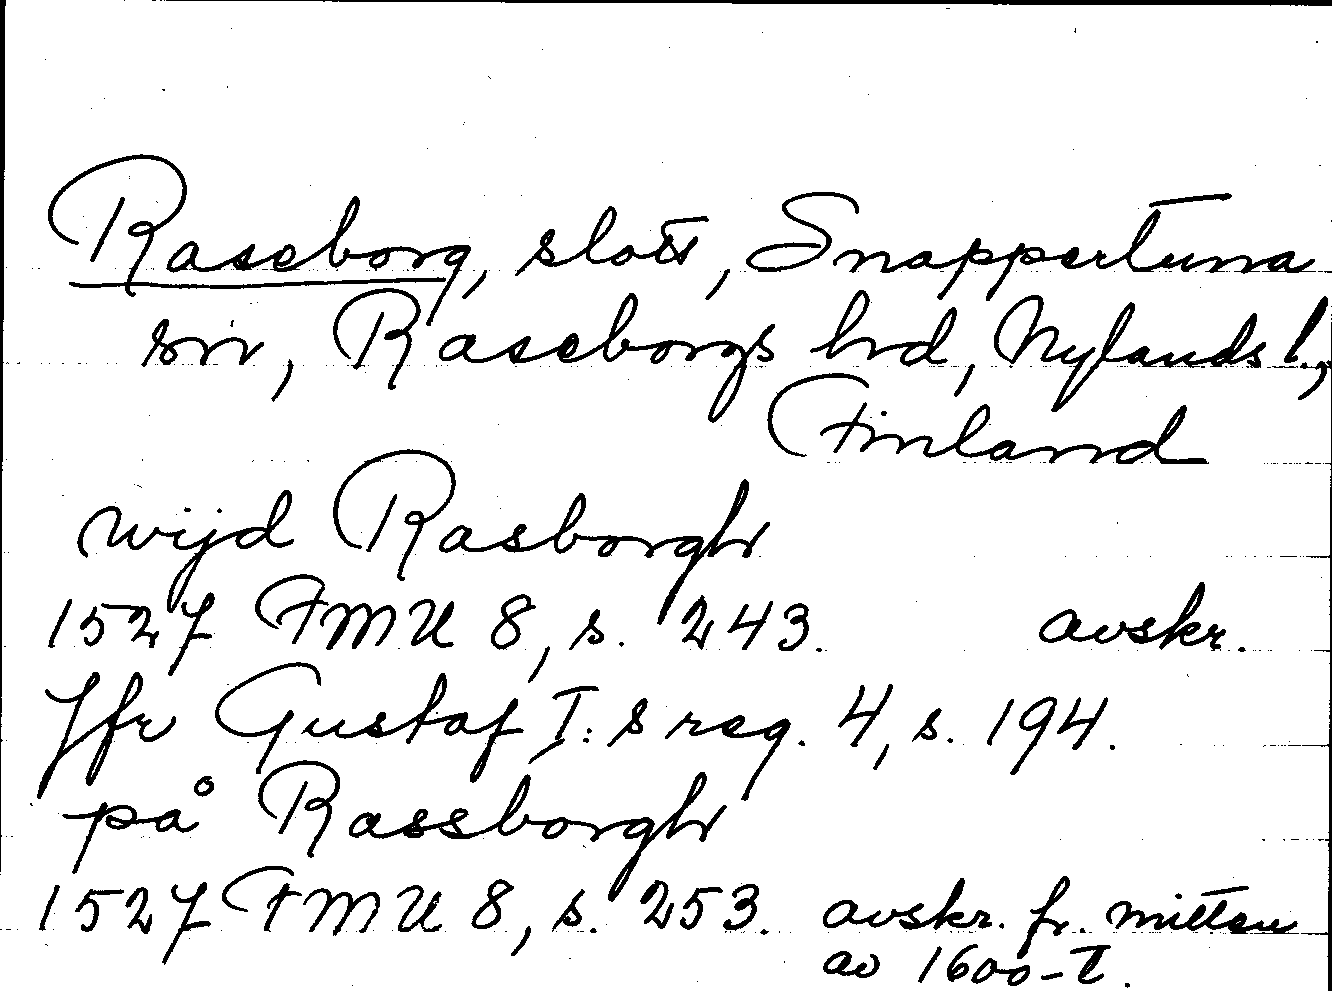 Raseborg, slott, Snappertuna
sn, Raseborgs hrd, Nylands l.,
Finland
wijd Rasborgh
1527 FMU 8, s. 243. avskr.
Jfr Gustaf I:s reg. 4, s. 194.
på Rassborgh
1527 FMU 8, s. 253. avskr. fr. mitten
av 1600-t.